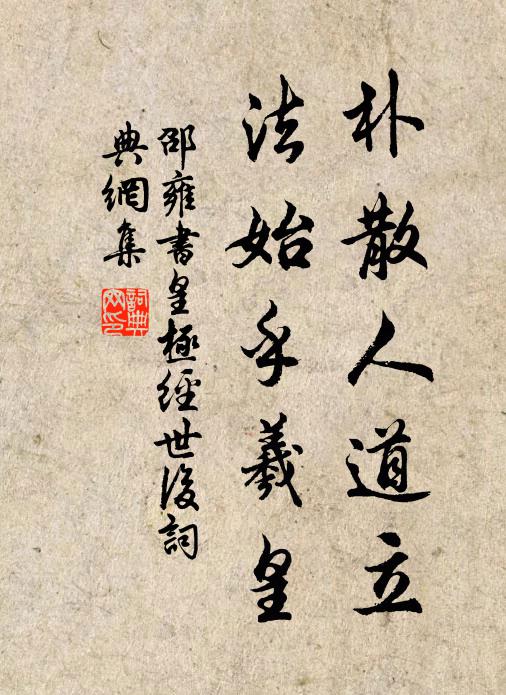 朴散人道立
法始乎羲皇
邵雍書皇極經世後詞
典網集
詞典
网印